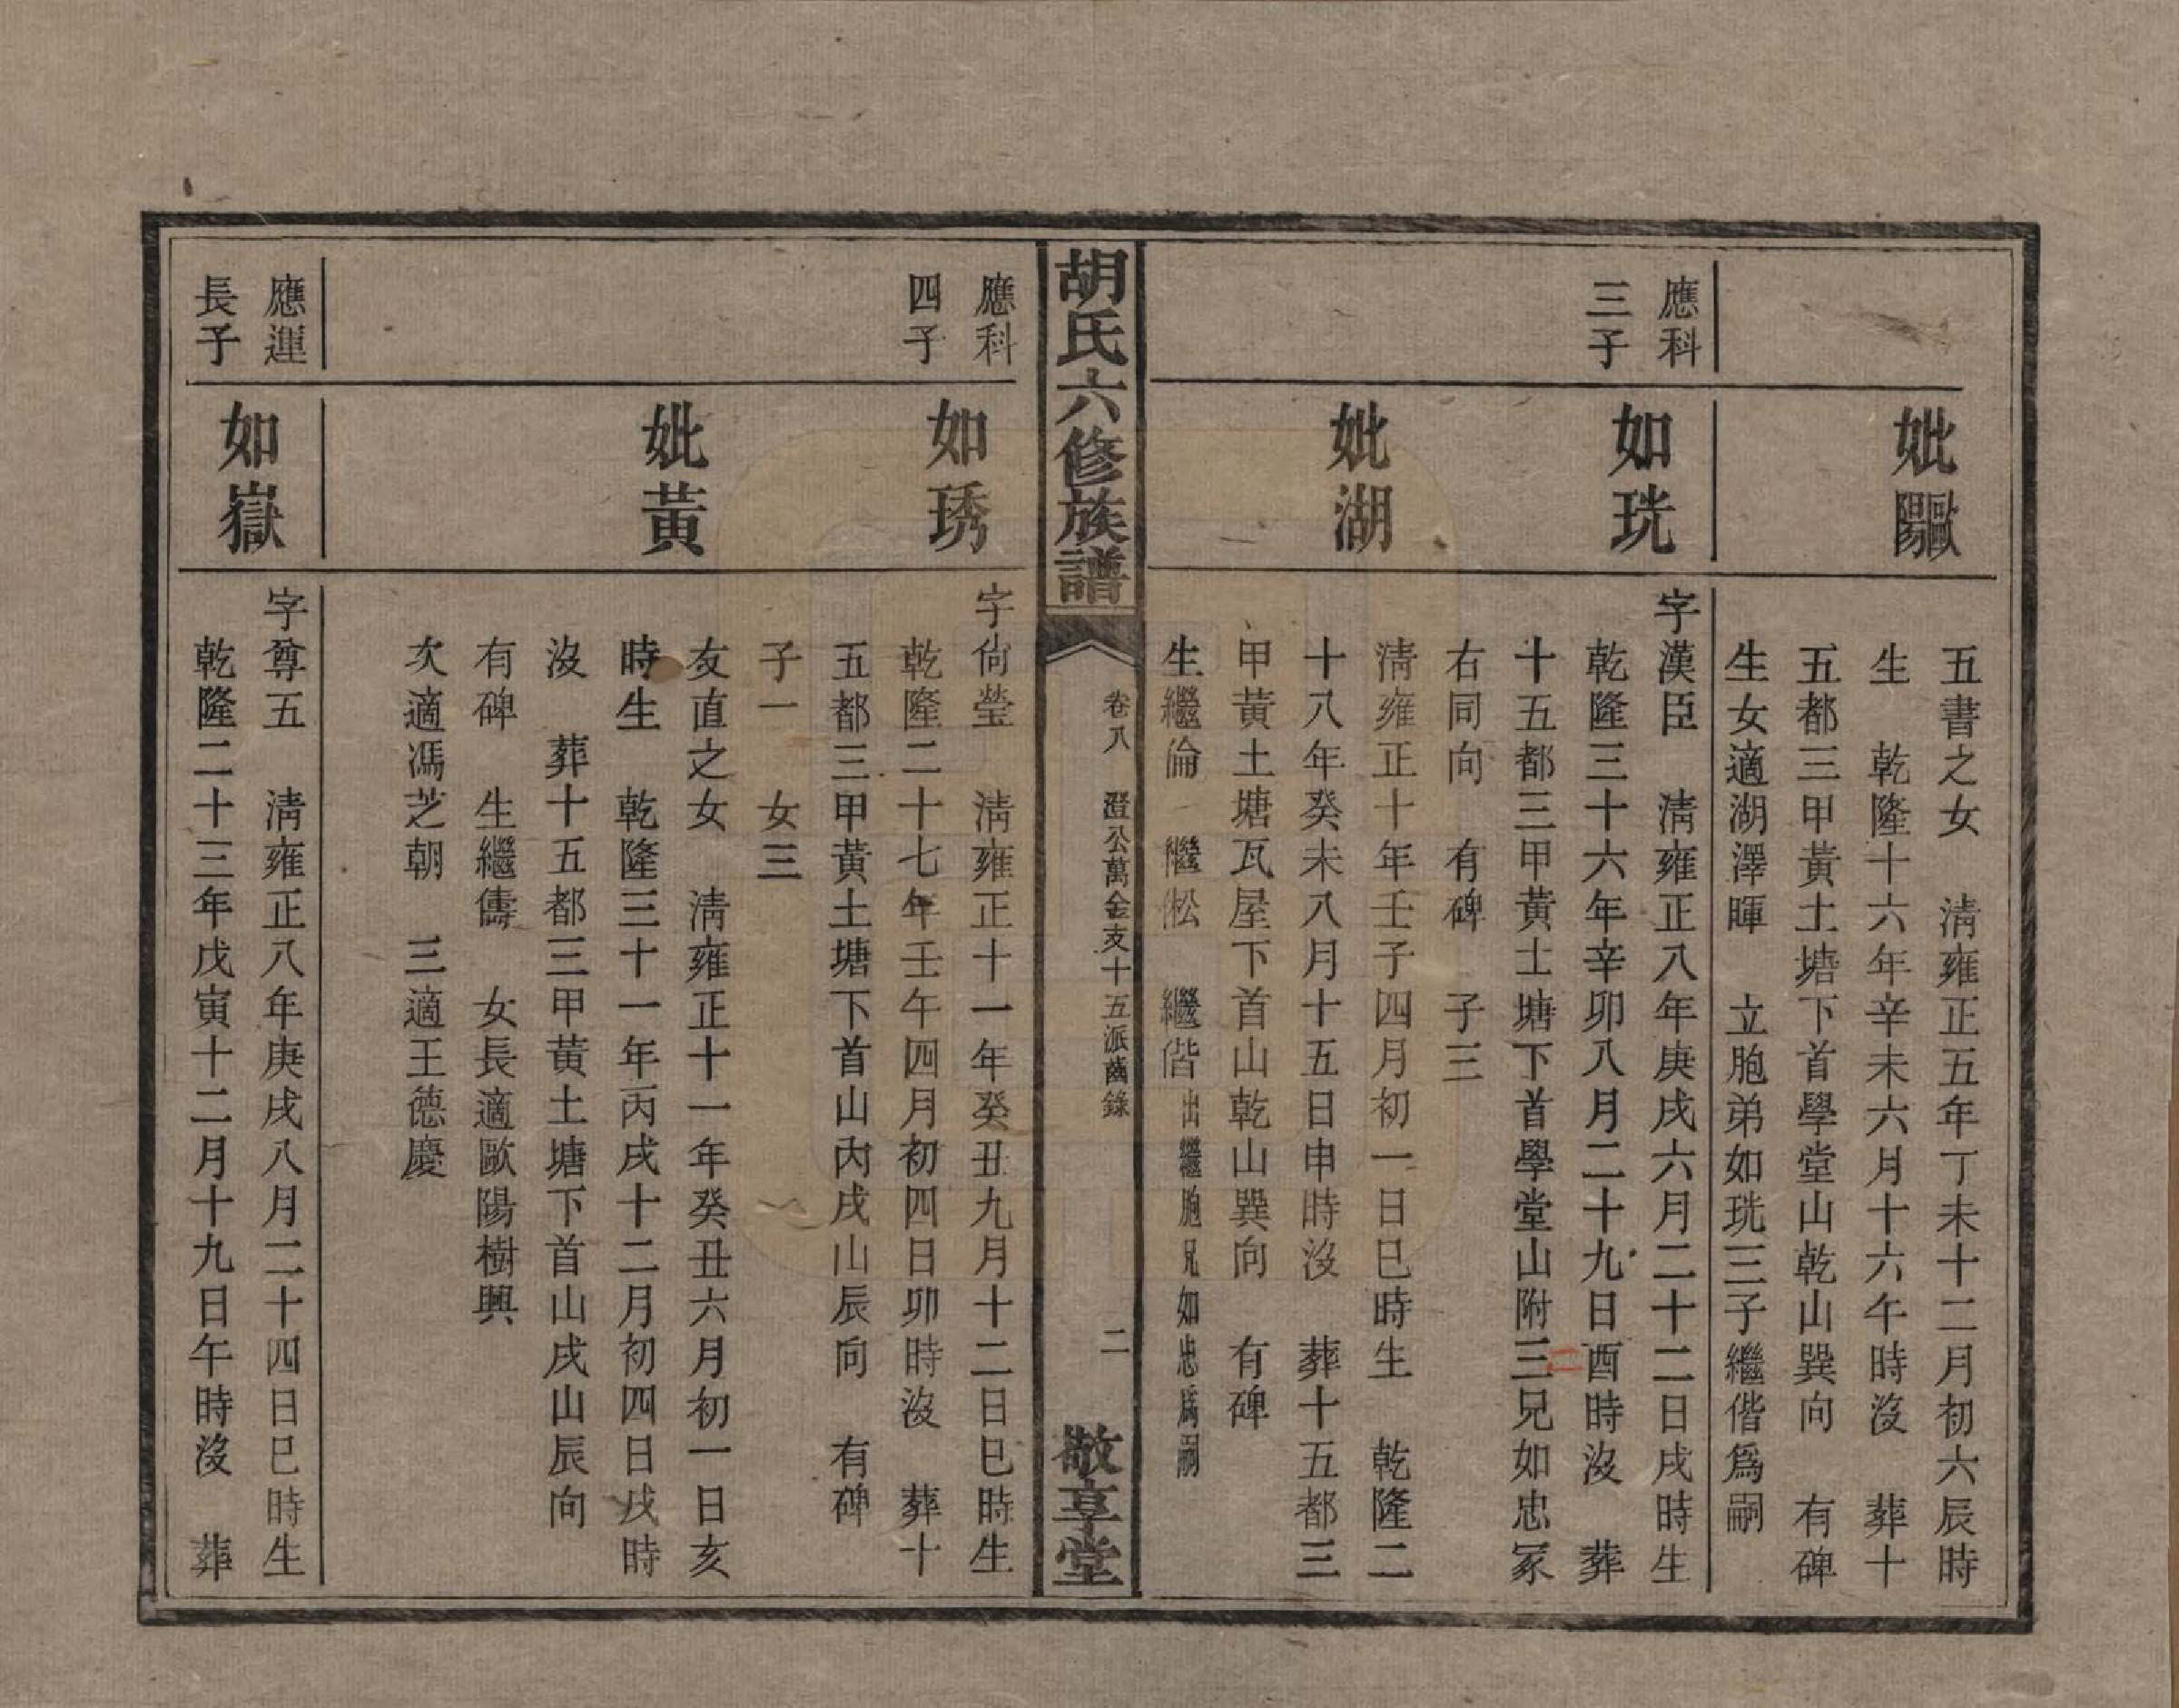 妣歐陽
五書之女　清雍正五年丁未十二月初六辰時
生　乾隆十六年辛未六月十六午時沒　葬十
五都三甲黃土塘下首學堂山乾山巽向　有碑
生女適湖澤暉　立胞弟如珖三子繼偕爲嗣
應科
三子
如珖
字漢臣　清雍正八年庚戌六月二十二日戌時生
乾隆三十六年辛卯八月二十九日酉時沒　葬
十五都三甲黃土塘下首學堂山附三兄如忠冢
右同向　有碑　子三
妣湖
清雍正十年壬子四月初一日巳時生　乾隆二
十八年癸未八月十五日申時沒　葬十五都三
甲黃土塘瓦屋下首山乾山巽向　有碑
生繼倫　繼倯　繼偕出繼胞兄如忠爲嗣
胡氏六修族譜
卷八　澄公萬金支十五派齒錄
二
敬享堂
應科
四子
如琇
字尙瑩　清雍正十一年癸丑九月十二日巳時生
乾隆二十七年壬午四月初四日卯時沒　葬十
五都三甲黃土塘下首山內戌山辰向　有碑
子一　女三
妣黃
友直之女　清雍正十一年癸丑六月初一日亥
時生　乾隆三十一年丙戌十二月初四日戌時
沒　葬十五都三甲黃土塘下首山戌山辰向
有碑　生繼儔　女長適歐陽樹興
次適馮芝朝　三適王德慶
應運
長子
如嶽
字尊五　清雍正八年庚戌八月二十四日巳時生
乾隆二十三年戊寅十二月十九日午時沒　葬